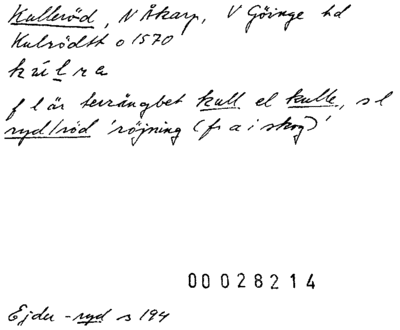 Kulleröd, N Åkarp, V Göinge hd
Kulrödtt o 1570
kúlra
f l är terrängbet kull el kulle, s l
ryd/röd 'röjning (fr a i skog)'
00028214
Ejder -ryd s 194